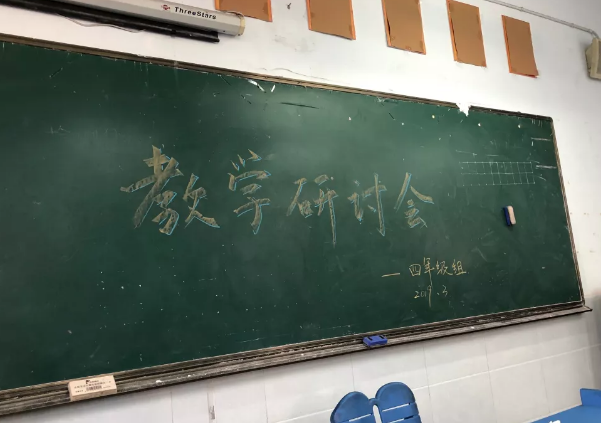 ThreeStars
教学研讨会
一四年级组
2019.3